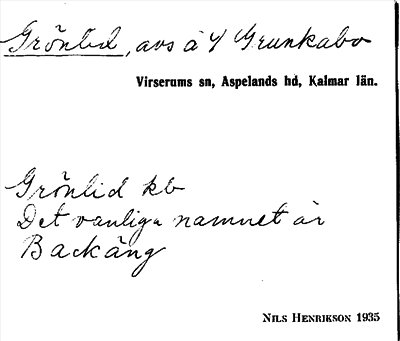 Grönlid, avs å 4 Grunkabo
Virserums sn, Aspelands hd, Kalmar län.
Grönlid kb
Det vanliga namnet är
Backäng
NILS HENRIKSON 1935